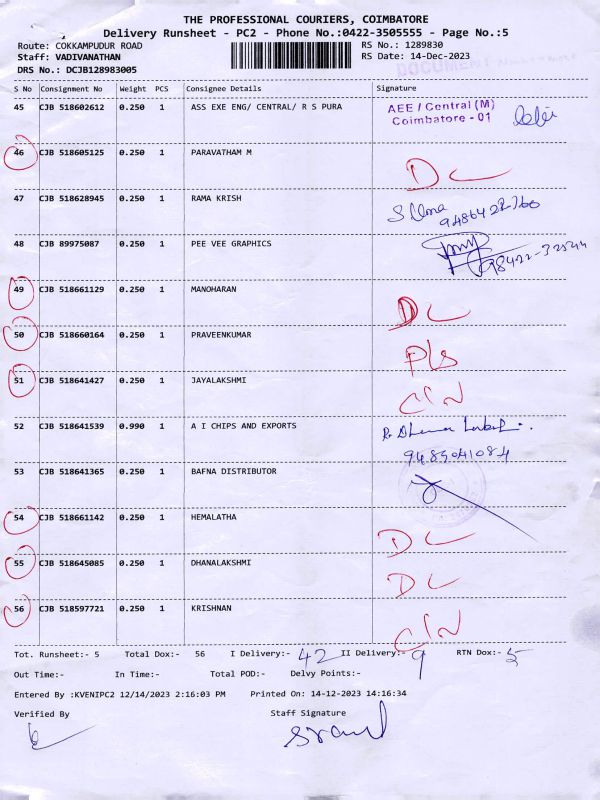 THE PROFESSIONAL COURIERS, COIMBATORE
Delivery Runsheet - PC2 - Phone No.:0422-3505555 - Page No.:5
Route: COKKAMPUDUR ROAD RS No.: 1289830
Staff: VADIVANATHAN RS Date: 14-Dec-2023
DRS No.: DCJB128983005 DOCUMENT
S No Consignment No Weight PCS Consignee Details Signature
45 CJB 518602612 0.250 1 ASS EXE ENG/ CENTRAL/ R S PURA AEE / Central (M)
Coimbatore - 01
46 CJB 518605125 0.250 1 PARAVATHAM M DL
47 CJB 518628945 0.250 1 RAMA KRISH S Uma
48 CJB 89975087 0.250 1 PEE VEE GRAPHICS
98422-32544
49 CJB 518661129 0.250 1 MANOHARAN DL
50 CJB 518660164 0.250 1 PRAVEENKUMAR PLS
51 CJB 518641427 0.250 1 JAYALAKSHMI CIN
52 CJB 518641539 0.990 1 A I CHIPS AND EXPORTS
9489041084
53 CJB 518641365 0.250 1 BAFNA DISTRIBUTOR
54 CJB 518661142 0.250 1 HEMALATHA DL
55 CJB 518645085 0.250 1 DHANALAKSHMI DL
56 CJB 518597721 0.250 1 KRISHNAN CIN
Tot. Runsheet:- 5 Total Dox:- 56 I Delivery:- 42 II Delivery:- 9 RTN Dox:- 5
Out Time:- In Time:- Total POD:- Delvy Points:-
Entered By :KVENIPC2 12/14/2023 2:16:03 PM Printed On: 14-12-2023 14:16:34
Verified By Staff Signature